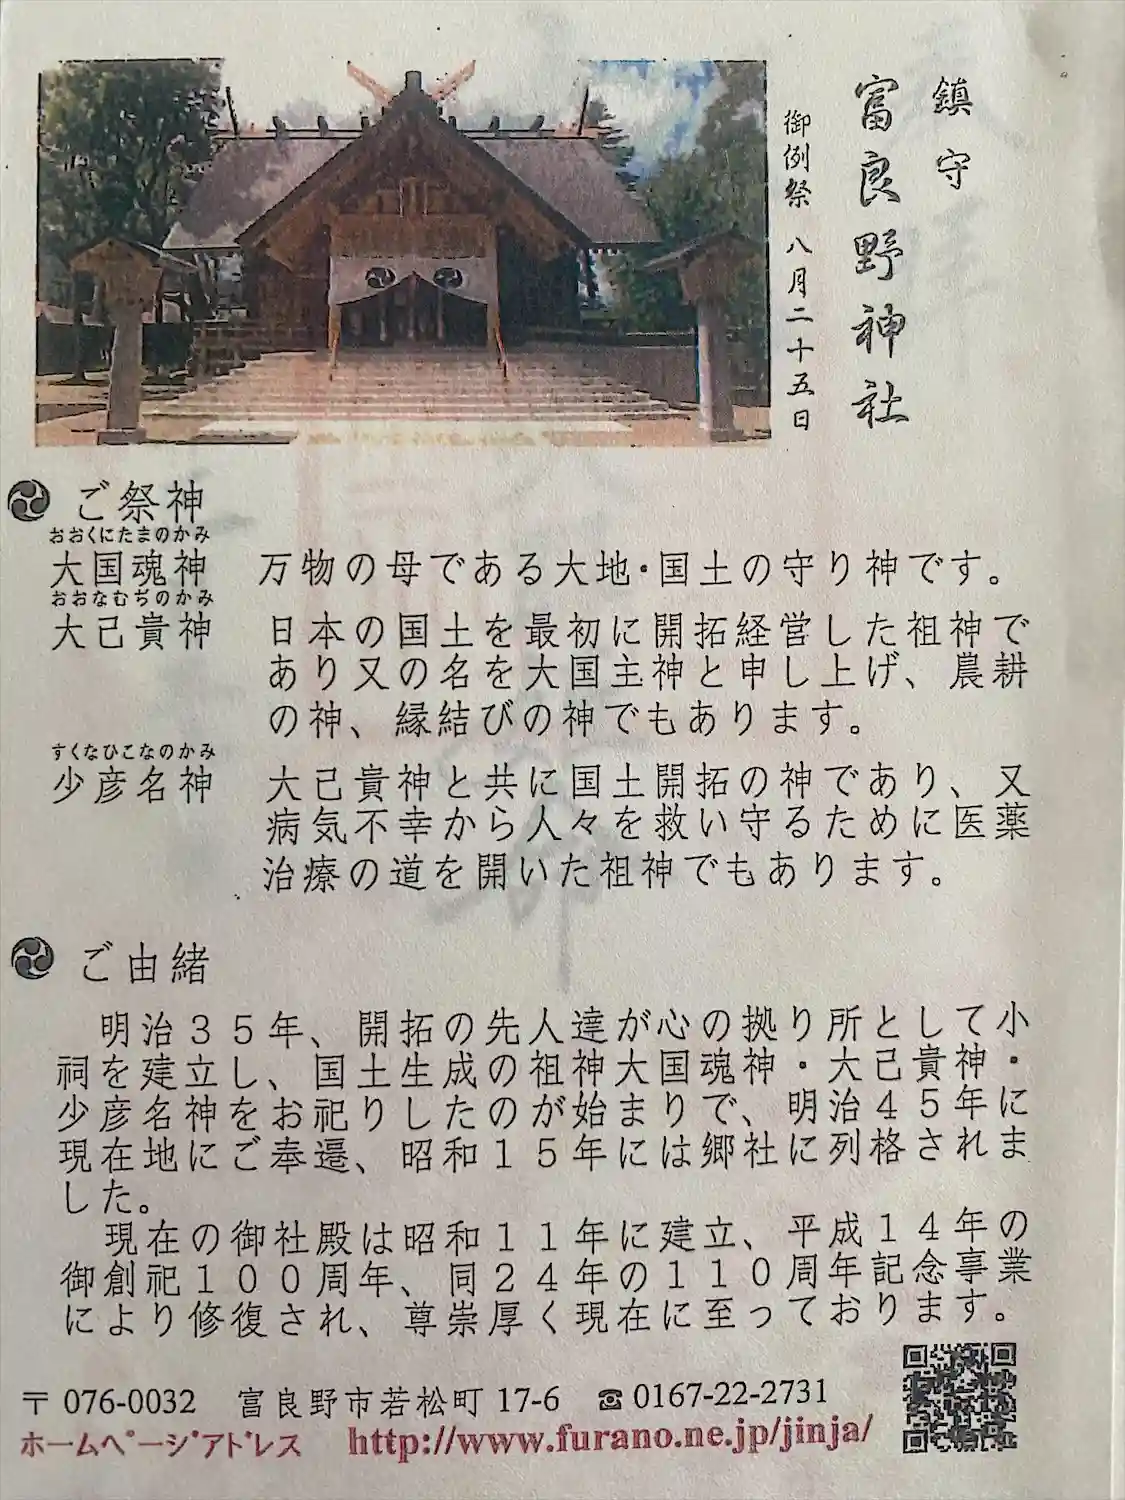 鎮守
富良野神社
御例祭 八月二十五日
ご祭神
おおくにたまのかみ
大国魂神 万物の母である大地・国土の守り神です。
おおなむぢのかみ
大己貴神 日本の国土を最初に開拓経営した祖神で
あり又の名を大国主神と申し上げ、農耕
の神、縁結びの神でもあります。
すくなひこなのかみ
少彦名神 大己貴神と共に国土開拓の神であり、又
病気不幸から人々を救い守るために医薬
治療の道を開いた祖神でもあります。
ご由緒
明治35年、開拓の先人達が心の拠り所として小
祠を建立し、国土生成の祖神大国魂神・大己貴神・
少彦名神をお祀りしたのが始まりで、明治45年に
現在地にご奉遷、昭和15年には郷社に列格されま
した。
現在の御社殿は昭和11年に建立、平成14年の
御創祀100周年、同24年の110周年記念事業
により修復され、尊崇厚く現在に至っております。
〒076-0032 富良野市若松町 17-6 ☎0167-22-2731
ホームページアドレス http://www.furano.ne.jp/jinja/